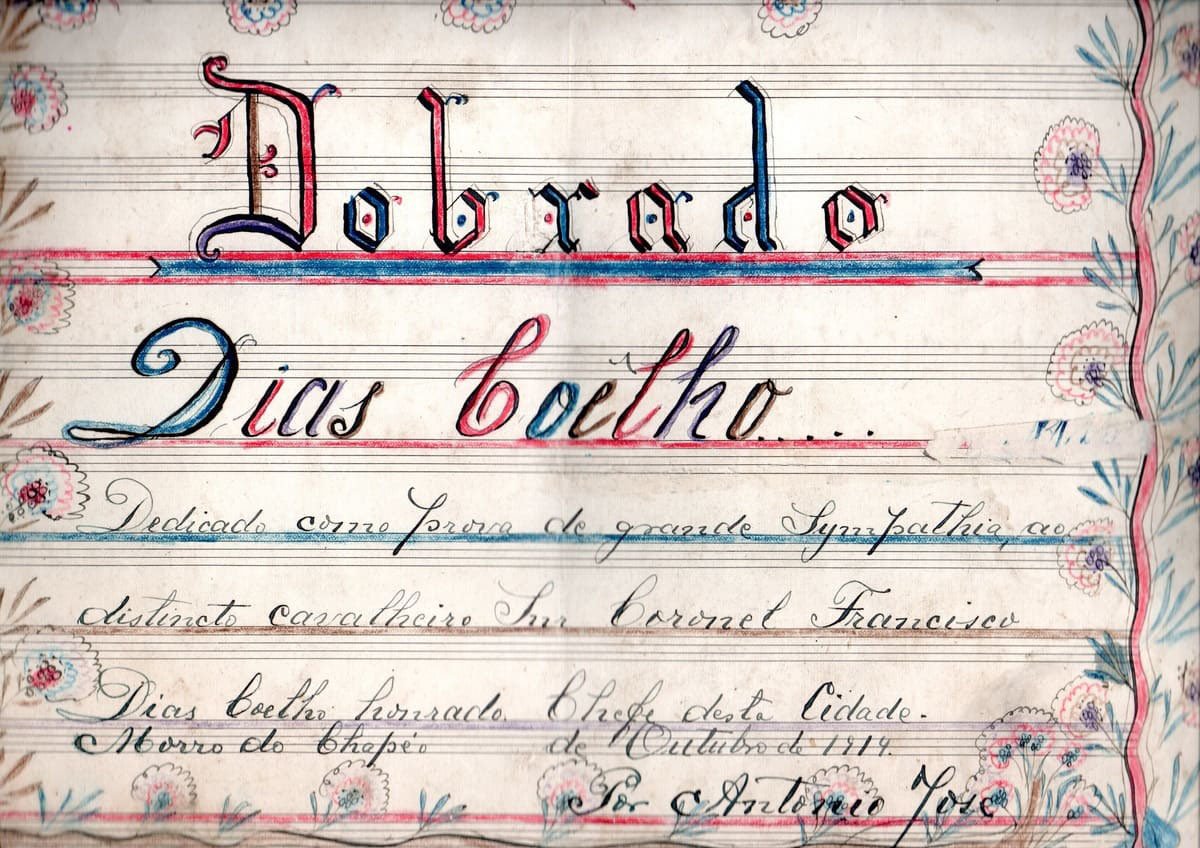 Dobrado
Dias Coelho.....
Dedicado como prova de grande Sympathia, ao
distincto cavalheiro Snr Coronel Francisco
Dias Coelho honrado Chefe desta Cidade.
Morro do Chapéo de Outubro de 1914.
Por Antonio José